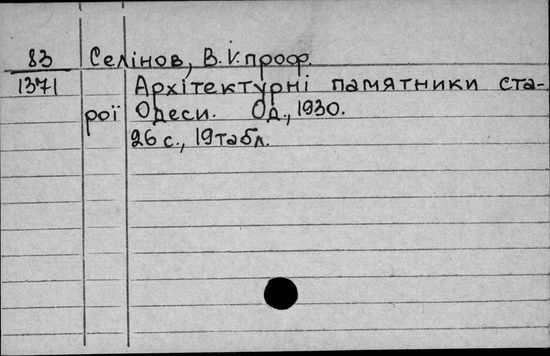 83 Селінов, В.V.проф.
1371 Архітектурні памятники ста-
рої Одеси. Од., 1930.
26 с., 19 табл.